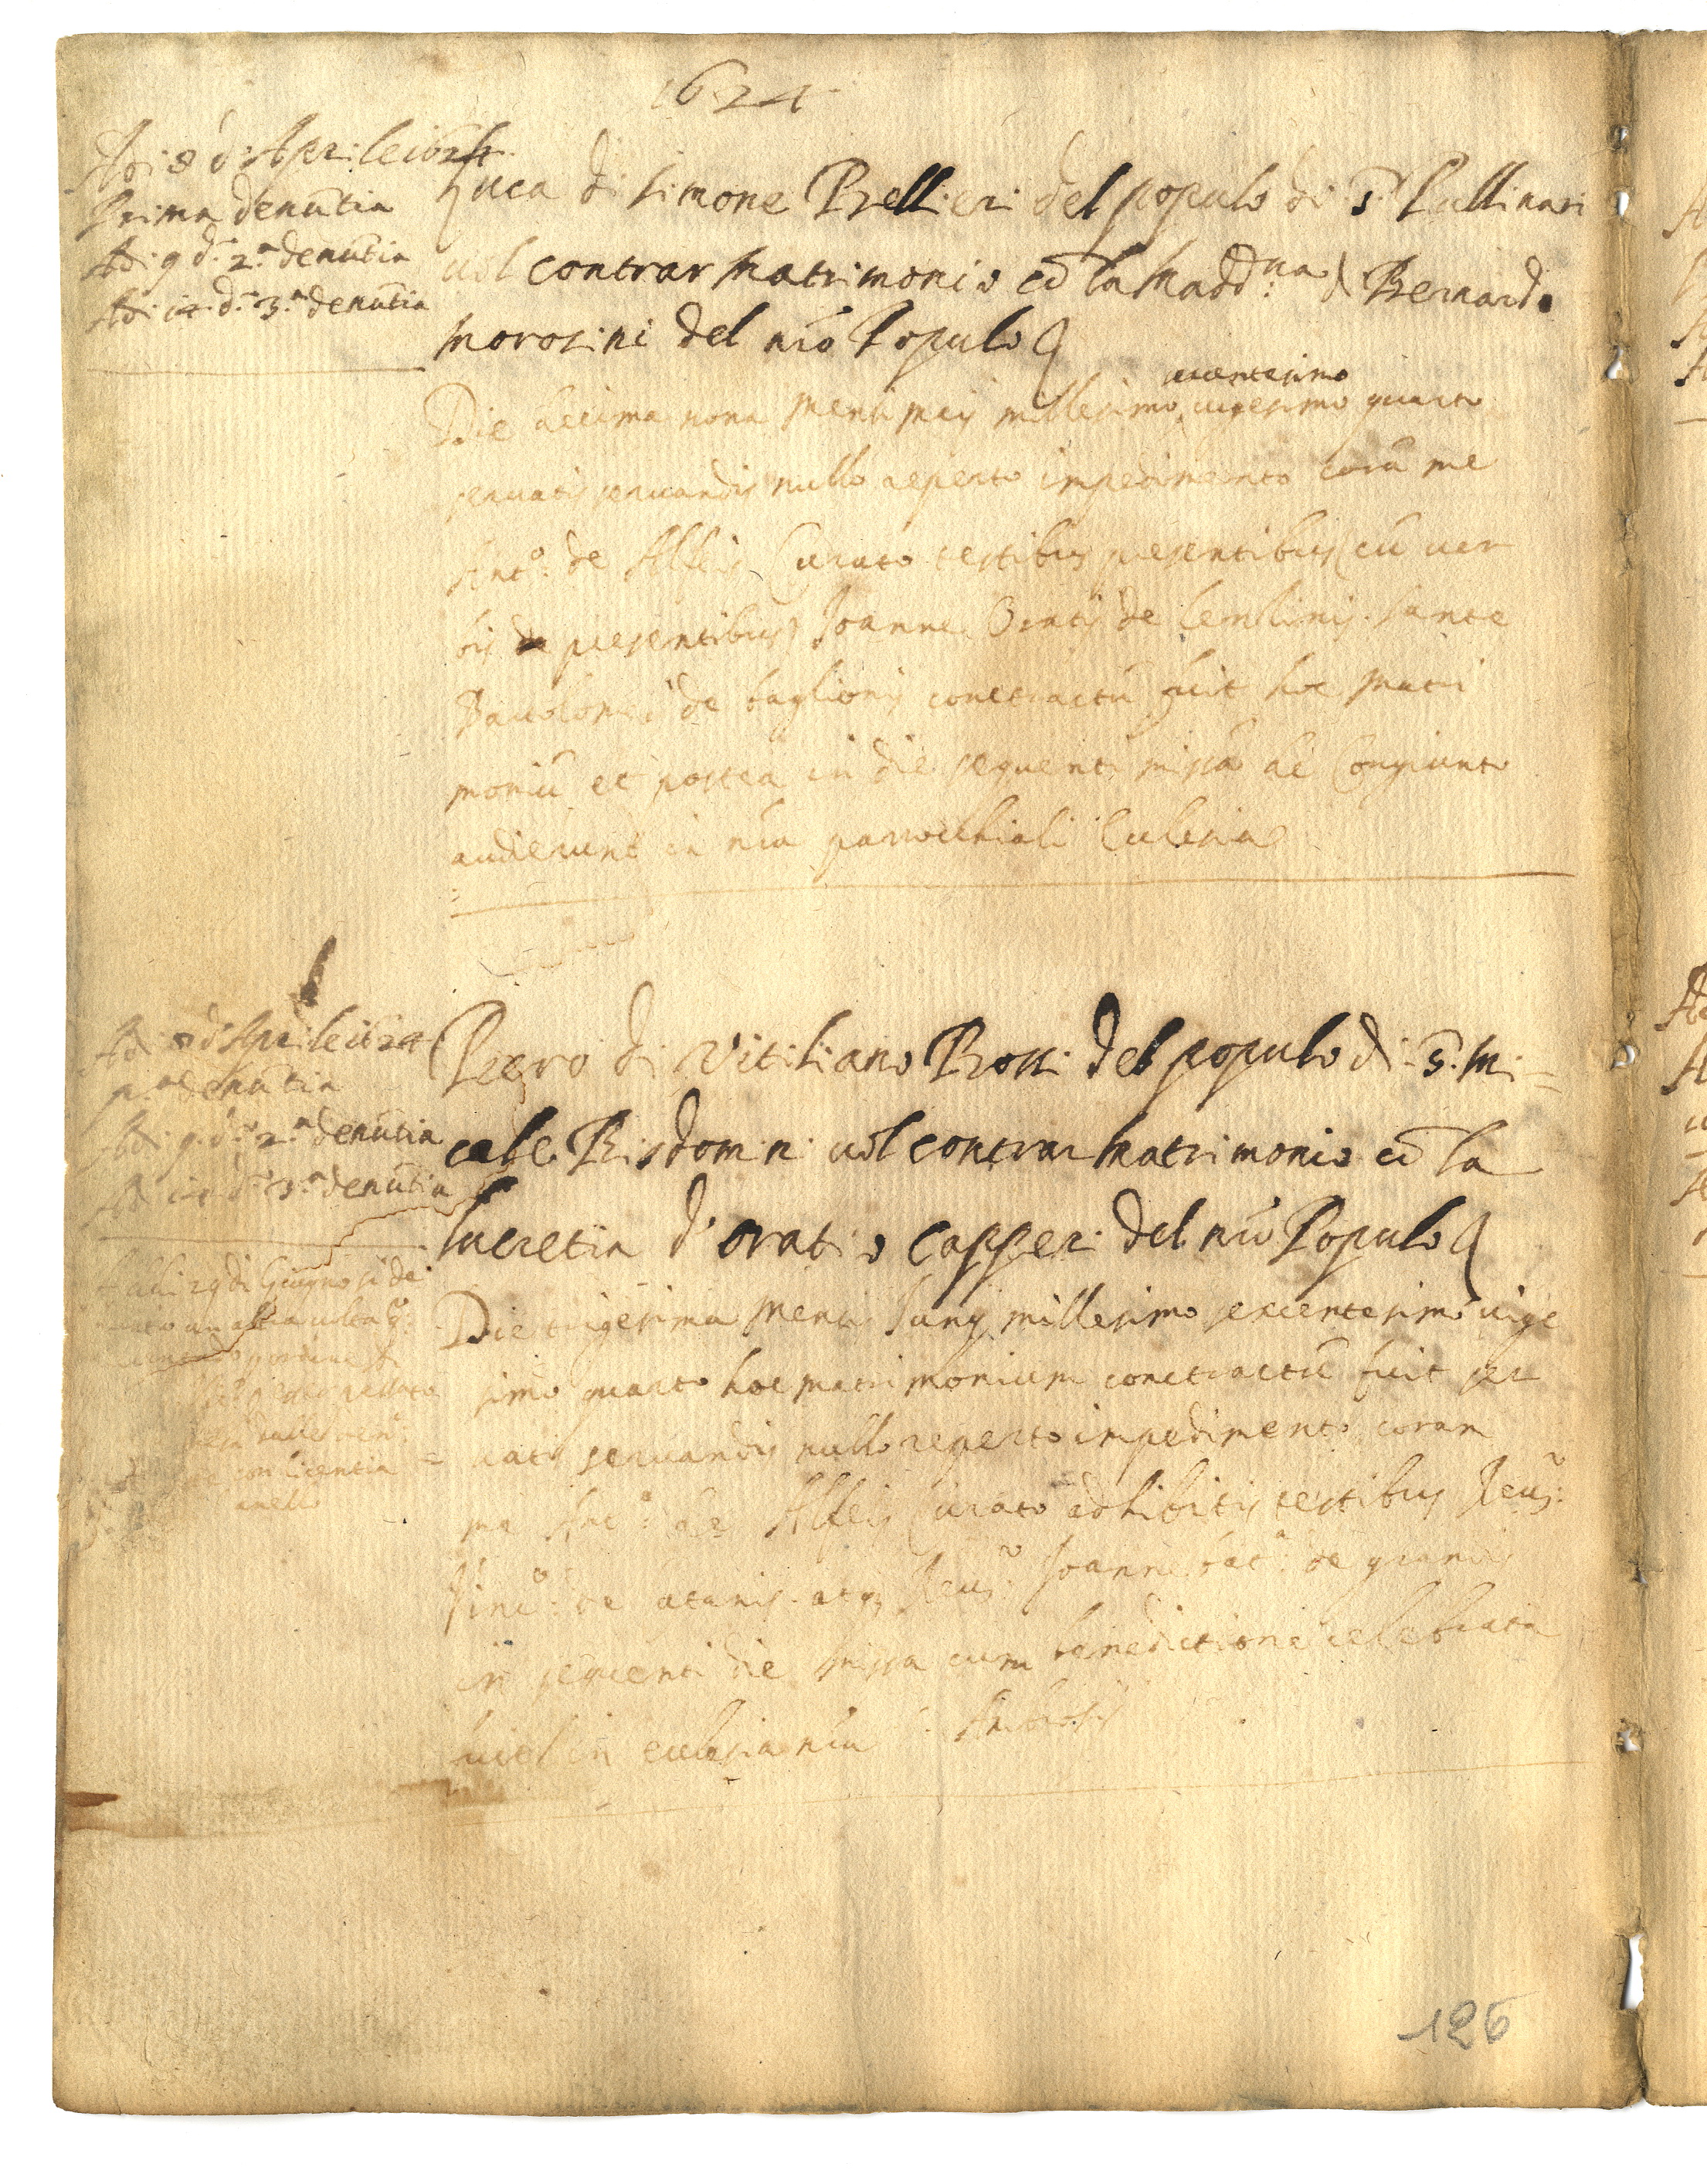 1624
Adi 8 d'Aprile 1624
Prima denūtia
Adi 9 dº 2.ª denūtia
Adi 14 dº 3.ª denūtia
Luca di Simone Bellieri del populo di S. Pullinari
uol contrar matrimonio cō la Madd:na di Bernardo
Morosini del nrō Populo
Die decima nona mensi maij millesimo sexcentesimo uigesimo quarto
seruatis seruandis nullo reperto impedimento corā me
Antº: de Alfeis Curato testibus presentibus (cū uer
bis de presentibus) Joanne Oratij de Sante
Bartolomei de baglionis contractū fuit hoc matri
moniū et postea in die sequenti missā ac Congiunto
audierunt in nrā parrochiali Eclesia
Adi 8 d'Aprile 1624
p.ª denūtia
Adi 9 dº 2.ª denūtia
Adi 14 dº 3.ª denūtia
alli 29 di Giugno si de
un altra uolta
con licentia
Piero di Vitiliano Rossi del populo di S. Mi=
cele Bisdomini uol contrar matrimonio cō la
Lucretia d'Oratio Capperi del nrō Populo
Die trigesima mensis Junij millesimo sexcentesimo uige
simo quarto hoc matrimonium contractū fuit ser
uatis seruandis nullo reperto impedimento coram
me Antº: de Alfeis Curato adhibitis testibus Reuº:
Vincº: de atq; Reuº: Joanne batª: de
in sequenti die missa cum benedictione celebrata
fuit in eclesia nrā
126